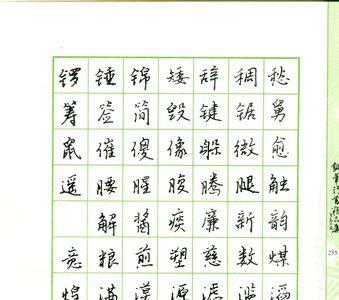 锣锤锦矮辞稠愁
筹签简毁键锯舅
鼠催傻像躲微愈
遥腰腥腹腾腿触
解酱痰廉新韵
意粮煎塑慈数煤
煌满漠源滤滥滔
255